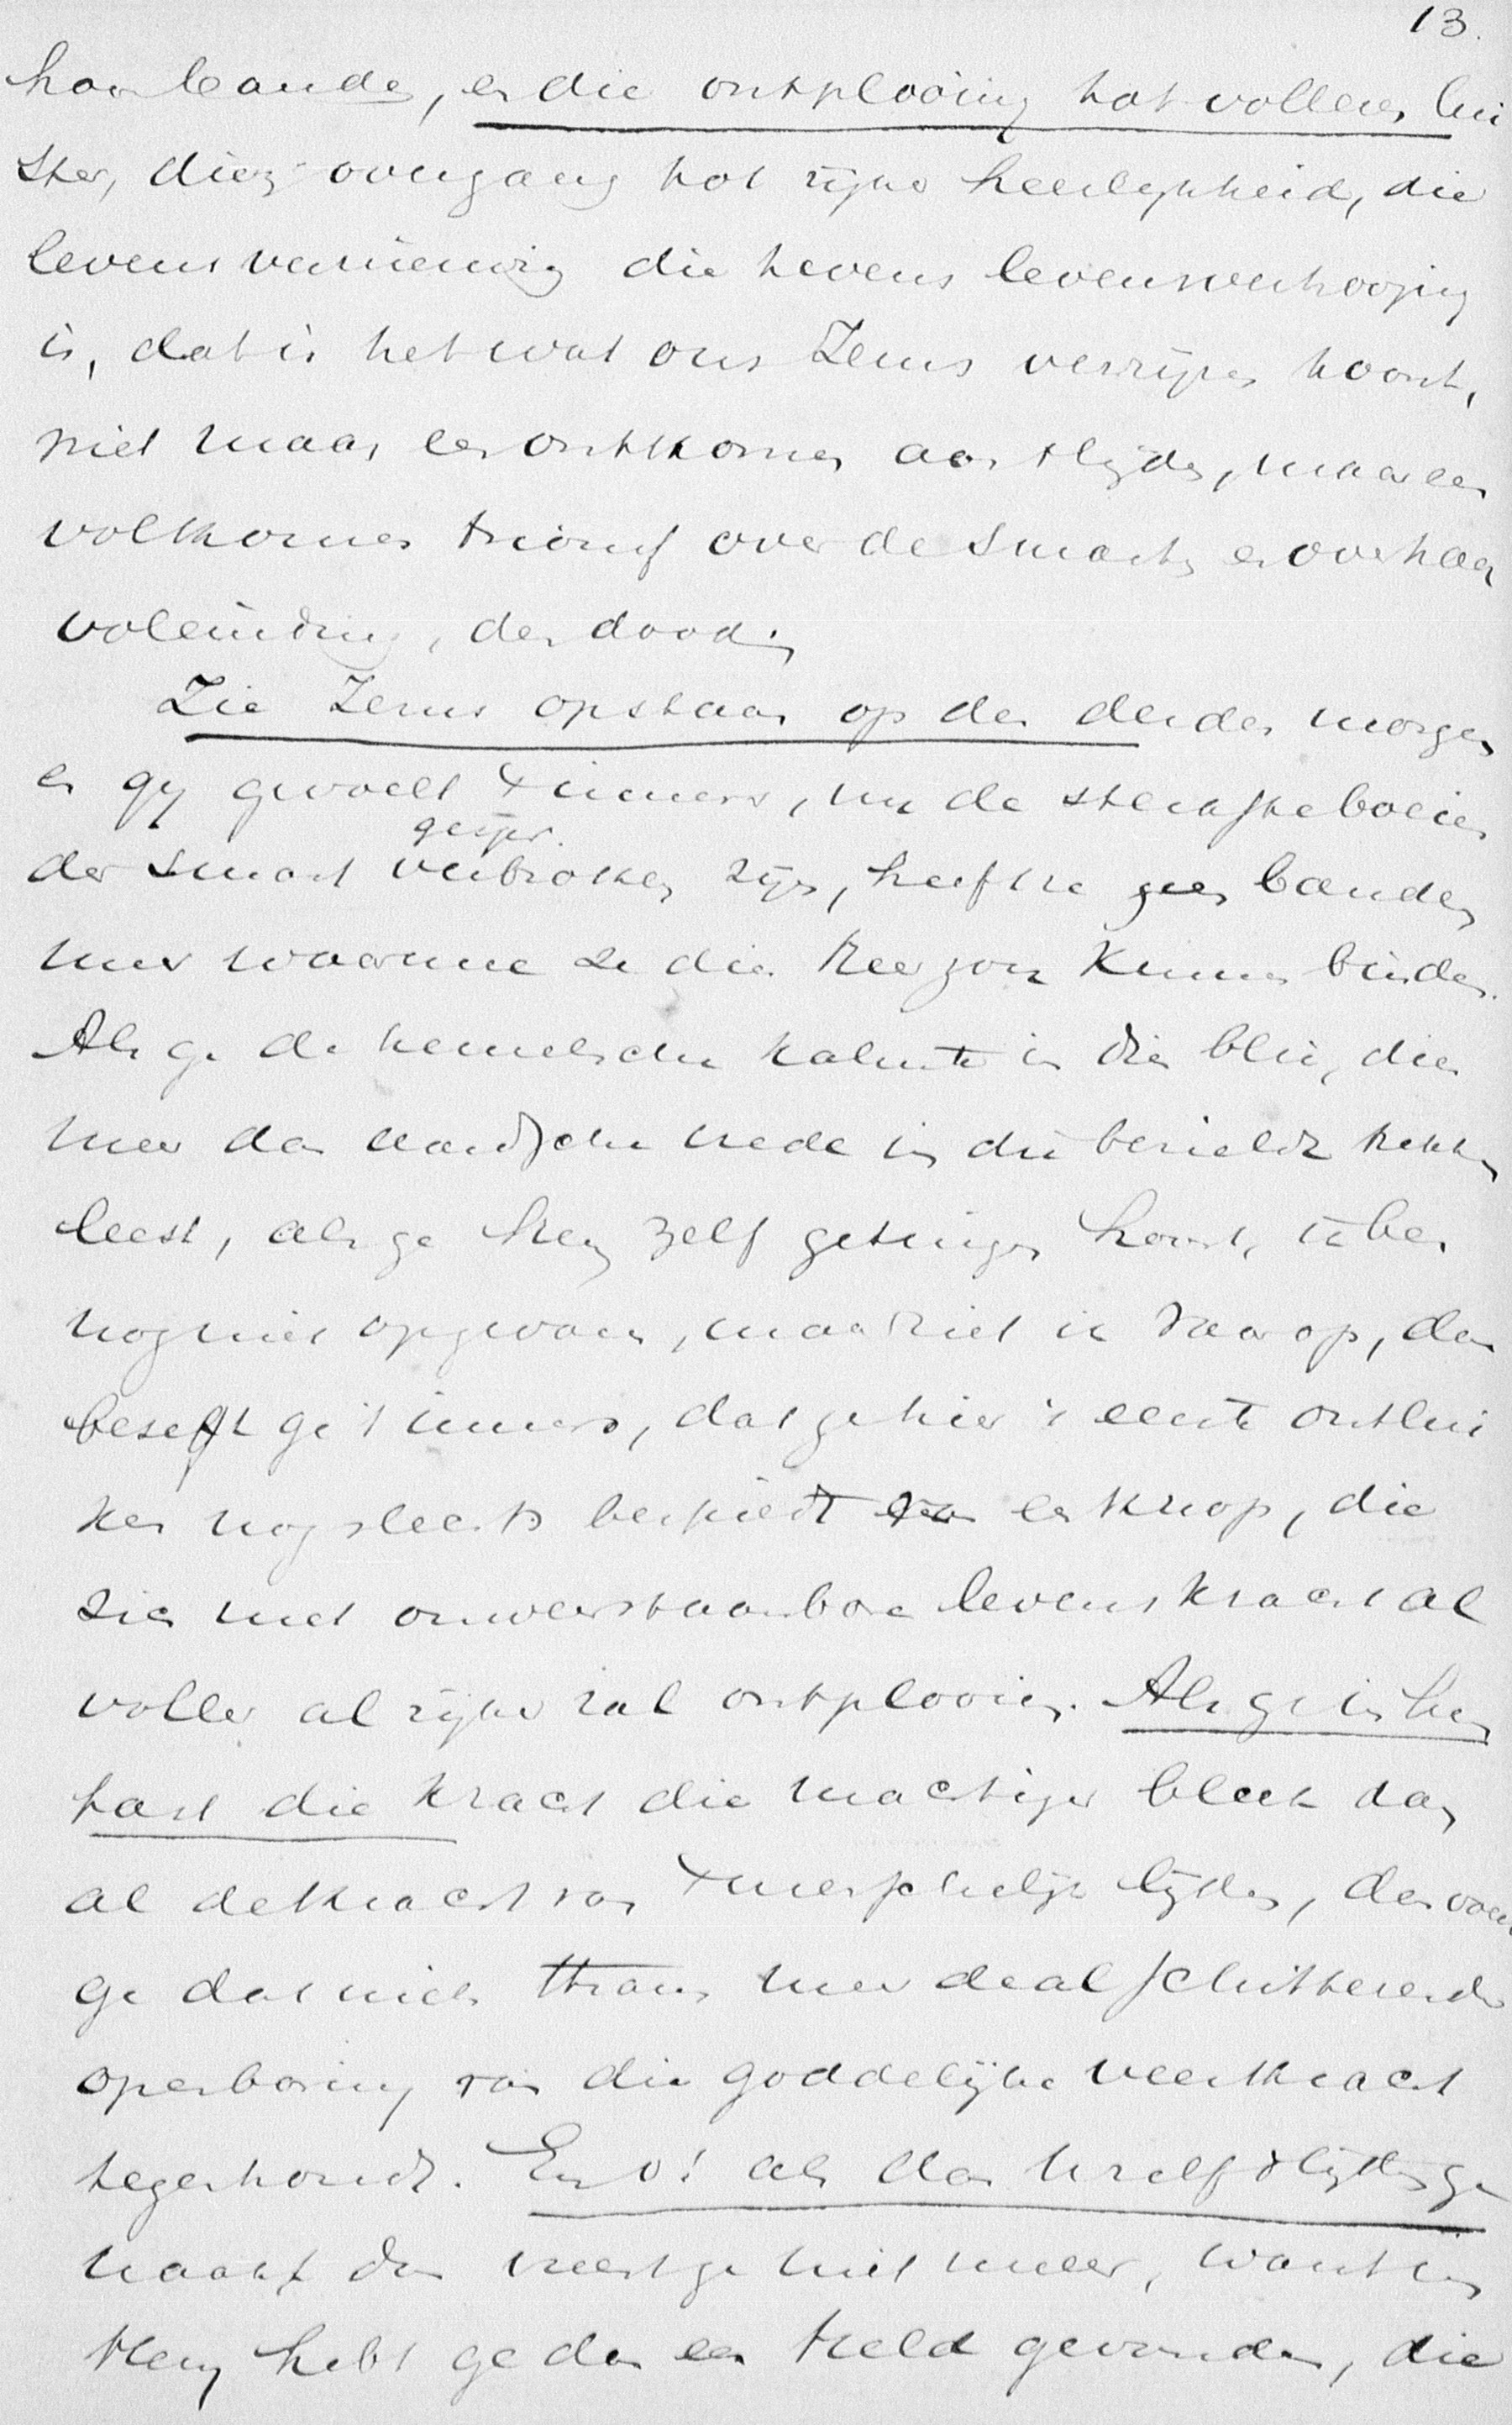 13.
haar banden, en die ontplooiing tot vollen lui
ster, dien overgang tot rijker heerlijkheid, die
levensvernieuwing die tevens levensverhooging
is, dat is het wat ons Jezus verrijzen toont,
niet maar een ontkomen aan 't lijden, maar een
volkomen triomf over de smart, en over haar
voleinding, den dood.
Zie Jezus opstaan op den derden morgen
en gij gevoelt 't immers, nu de sterkste boeien
der smart verbroken zijn, heeft ze geen banden
meer waarmee ze die zou kunnen binden.
Als ge de hemelsche kalmte in dien blik, dien
meer dan aardschen vrede in die bezielde trekken
leest, als ge Hem zelf getuigen hoort, ik ben
nog niet opgevaren, maar ziet ik vaar op, dan
beseft ge 't immers, dat ge hier 't eerste ontlui
ken nog slechts bespiedt van een knop, die
zich met onweerstaanbare levenskracht al
voller al rijker zal ontplooien. Als ge in hem
tast die kracht die machtiger bleek dan
al de kracht van 't menschelijk lijden, dan voelt
ge dat niets thans meer de al schitterender
openbaring van die goddelijke veerkracht
tegenhoudt. En o! als dan uzelf 't lijden ge
naakt dan vreest ge niet meer, want in
Hem hebt ge dan een Held gevonden, die